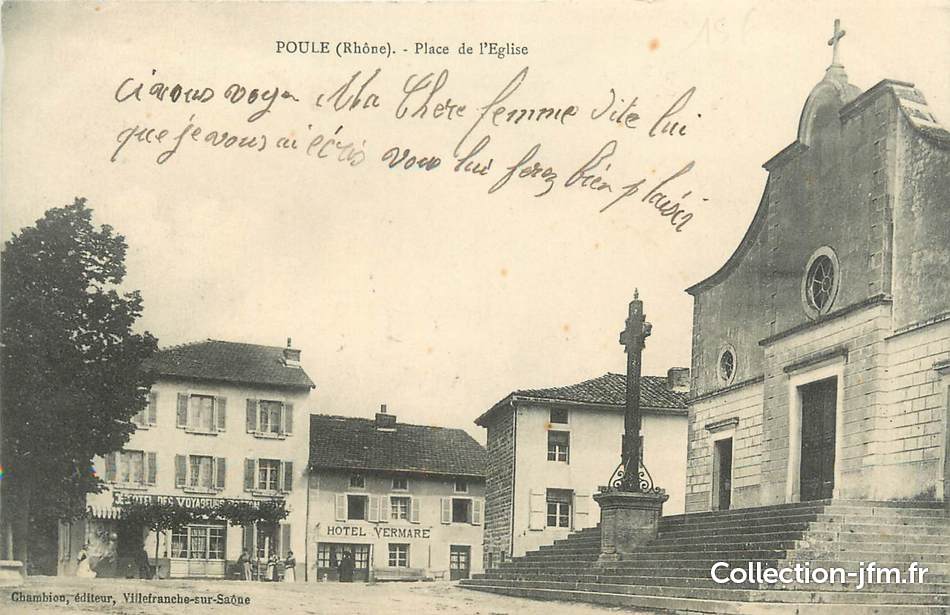 POULE (Rhône). - Place de l'Eglise
si vous voyez Ma Chere femme dite lui
que je vous ai écris vous lui ferez bien plaisir
HOTEL DES VOYAGEURS
HOTEL VERMARE
Collection-jfm.fr
Chambion, éditeur, Villefranche-sur-Saône